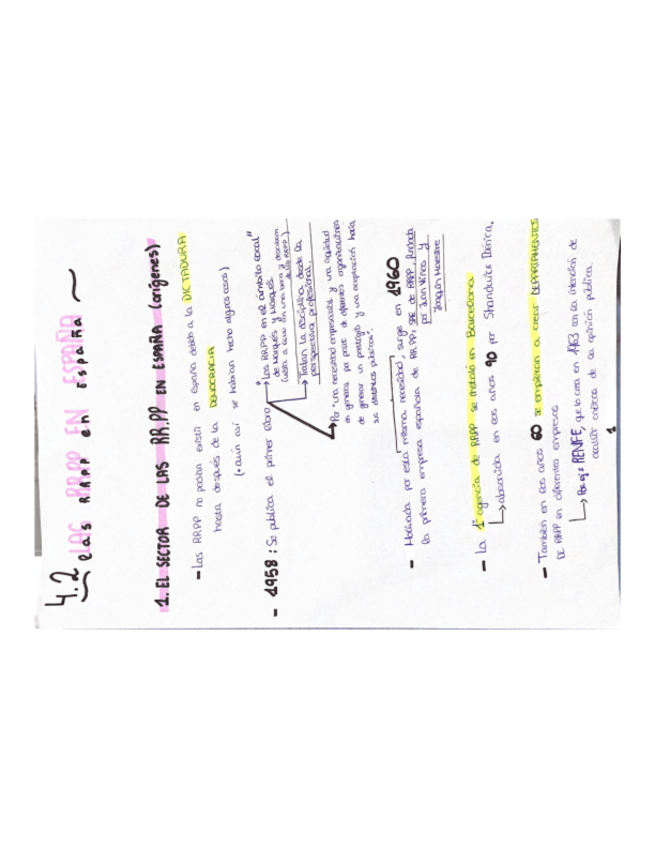 4.2 las RRPP en España
LAS RRPP EN ESPAÑA
1. EL SECTOR DE LAS RR.PP EN ESPAÑA (orígenes)
- Las RRPP no podían existir en España debido a la DICTADURA
hasta después de la DEMOCRACIA
(+aún así se habían hecho algunas cosas)
- 1958: Se publica el primer libro "Las RRPP en el ámbito local"
de Marqués y Marqués
Tratan la disciplina desde la
perspectiva profesional.
Por "una necesidad empresarial y una inquietud
en general por parte de diferentes organizaciones
de generar un prestigio y una aceptación hacia
sus distintos públicos".
- Motivada por esta misma necesidad, surge en 1960
la primera empresa española de RR.PP: SAE de RRPP, fundada
por Juan Viñas y
Joaquín Maestre
- La 1ª agencia de RRPP se instaló en Barcelona
absorvida en los años 90 por Shandwick Ibérica.
- También en los años 60 se empiezan a crear DEPARTAMENTOS
DE RRPP en diferentes empresas
Por ej: RENFE, que lo crea en 1963 con la intención de
recibir críticas de la opinión pública.
1